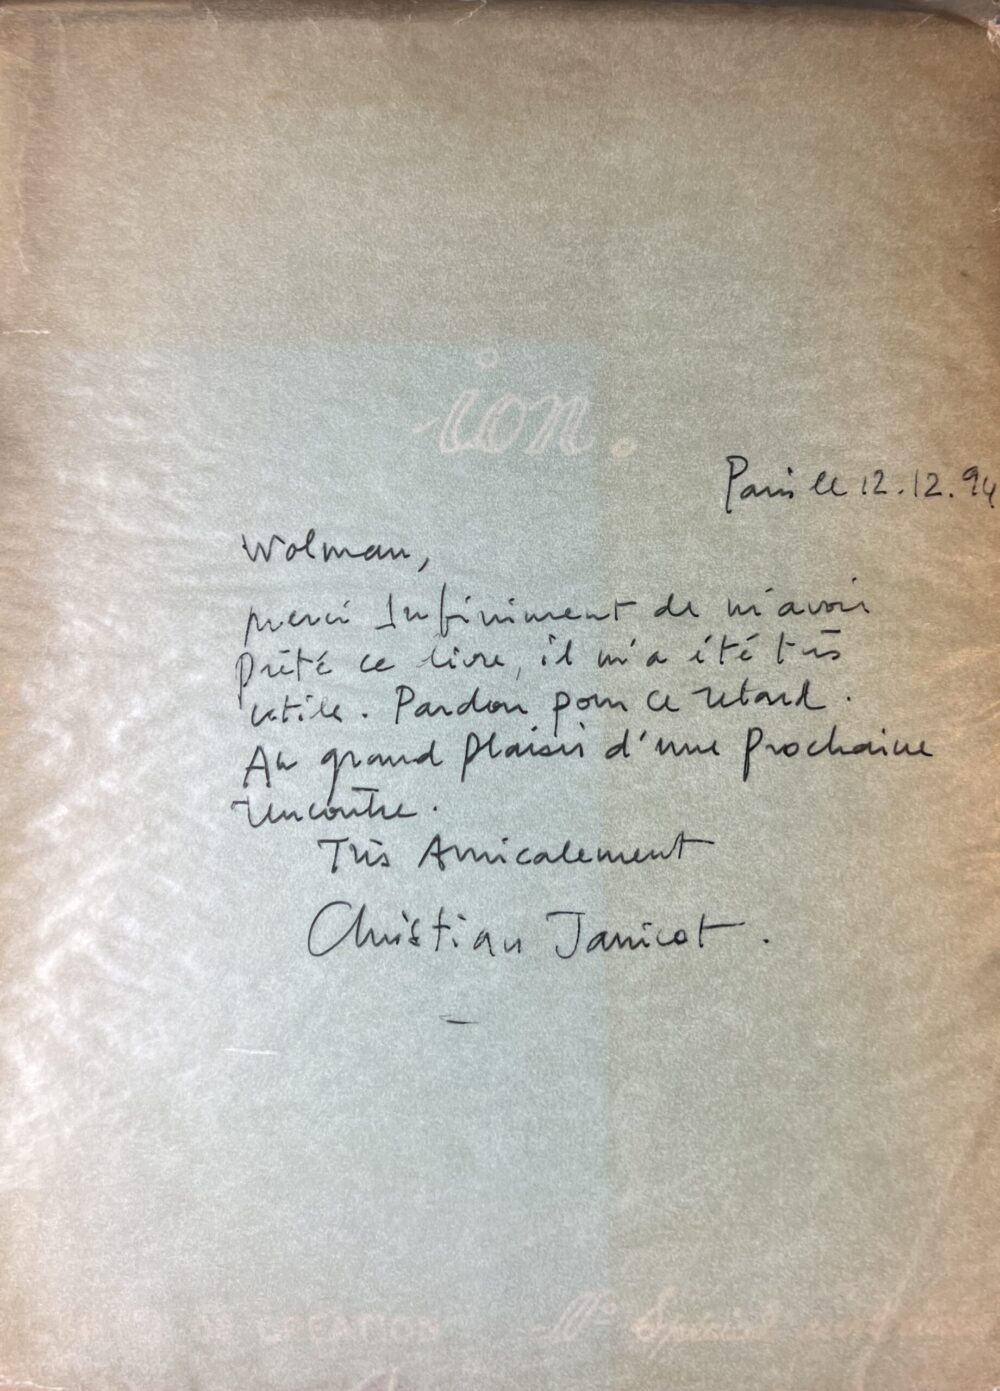 ion.
Paris le 12.12.94
Wolman,
merci Infiniment de m'avoir
Prêté ce livre, il m'a été très
utile. Pardon pour ce retard.
Au grand plaisir d'une Prochaine
rencontre.
Très Amicalement
Christian Janicot.
CREATION N° Spécial